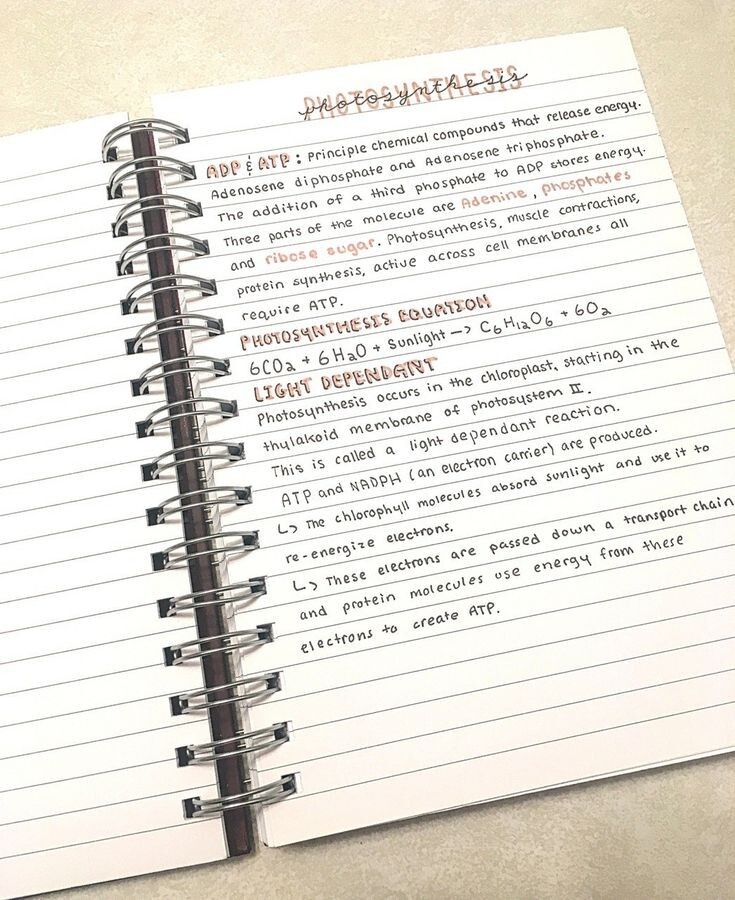 PHOTOSYNTHESIS
photosynthesis
ADP & ATP : Principle chemical compounds that release energy.
Adenosene diphosphate and Adenosene triphosphate.
The addition of a third phosphate to ADP stores energy.
Three parts of the molecule are Adenine, phosphates
and ribose sugar. Photosynthesis, muscle contractions,
protein synthesis, active across cell membranes all
require ATP.
PHOTOSYNTHESIS EQUATION
6CO₂ + 6H₂O + Sunlight —> C₆H₁₂O₆ + 6O₂
LIGHT DEPENDANT
Photosynthesis occurs in the chloroplast, starting in the
thylakoid membrane of photosystem II.
This is called a light dependant reaction.
ATP and NADPH (an electron carrier) are produced.
↳ The chlorophyll molecules absord sunlight and use it to
re-energize electrons.
↳ These electrons are passed down a transport chain
and protein molecules use energy from these
electrons to create ATP.